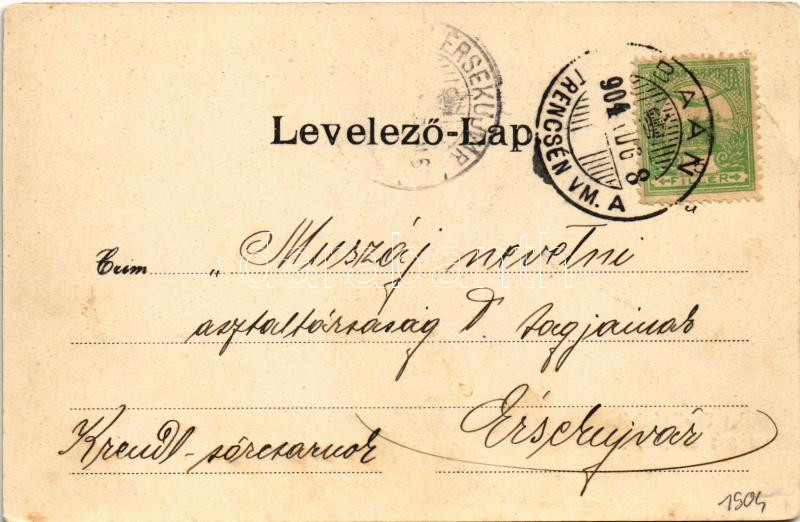 ÉRSEKUJVÁR
BAÁN
904 AUG 8
TRENCSÉN VM. A
FILLÉR
Levelező-Lap.
Czim „Muszáj nevetni
asztaltársaság T. tagjainak
Érsekujvár
Krendl-sörcsarnok
1904